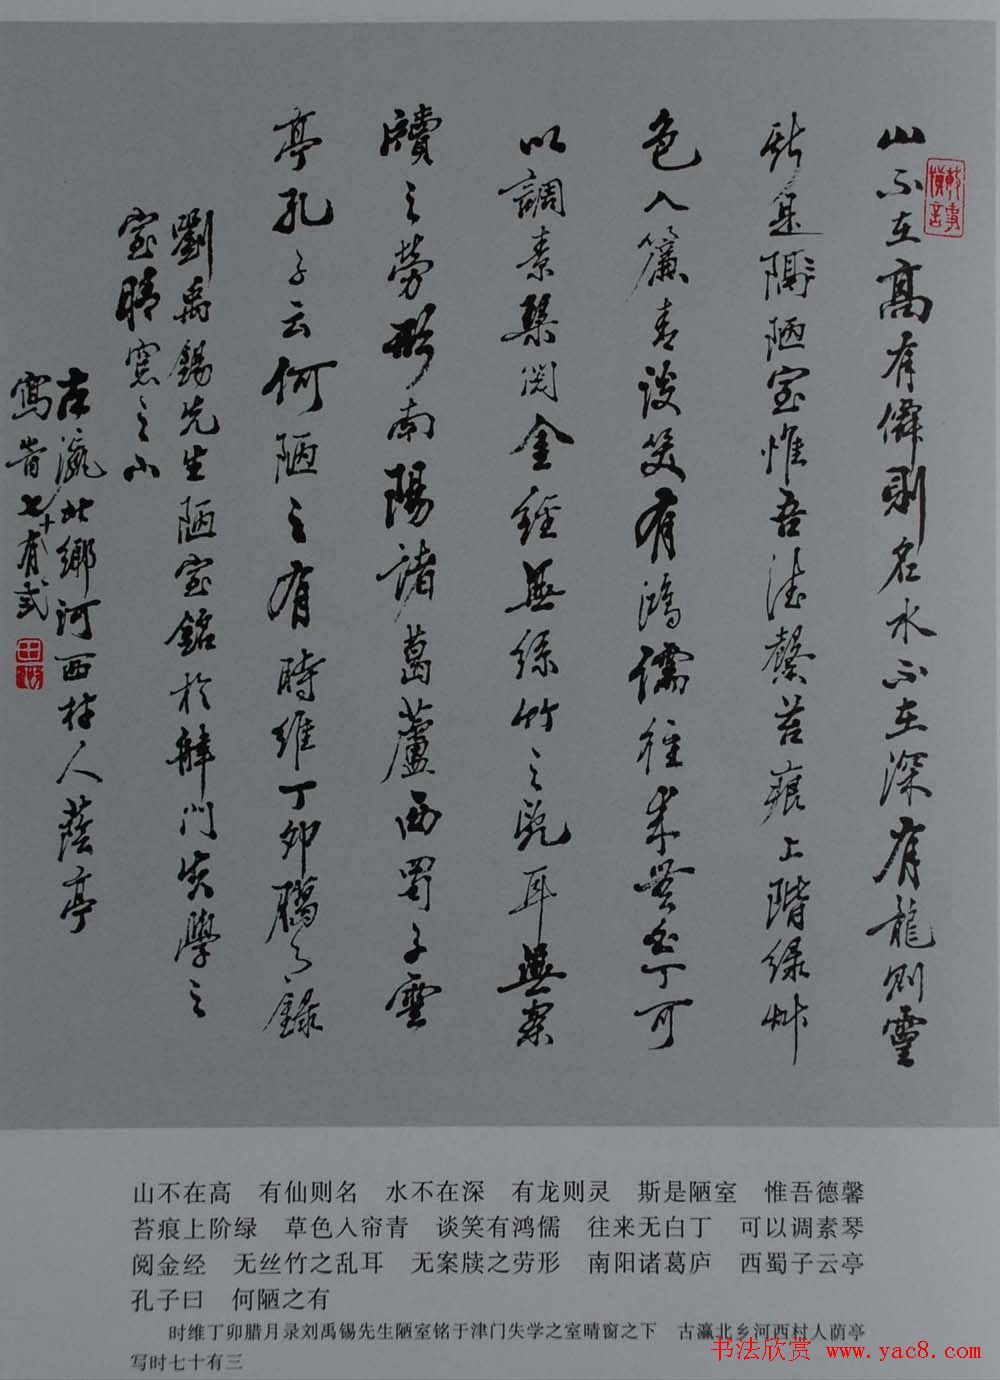 山不在高有僊則名水不在深有龍則靈
斯是陋室惟吾德馨苔痕上階緑艸
色入簾青談笑有鴻儒往來無白丁可
以調素琴閲金經無絲竹之亂耳無案
牘之勞形南陽諸葛廬西蜀子雲
亭孔子云何陋之有時維丁卯臘月錄
劉禹錫先生陋室銘於津門失學之
室晴窓之下
古瀛北鄉河西村人蔭亭
寫時七十有弎
山不在高　有仙则名　水不在深　有龙则灵　斯是陋室　惟吾德馨
苔痕上阶绿　草色入帘青　谈笑有鸿儒　往来无白丁　可以调素琴
阅金经　无丝竹之乱耳　无案牍之劳形　南阳诸葛庐　西蜀子云亭
孔子曰　何陋之有
时维丁卯腊月录刘禹锡先生陋室铭于津门失学之室晴窗之下　古瀛北乡河西村人荫亭
写时七十有三
书法欣赏 www.yac8.com